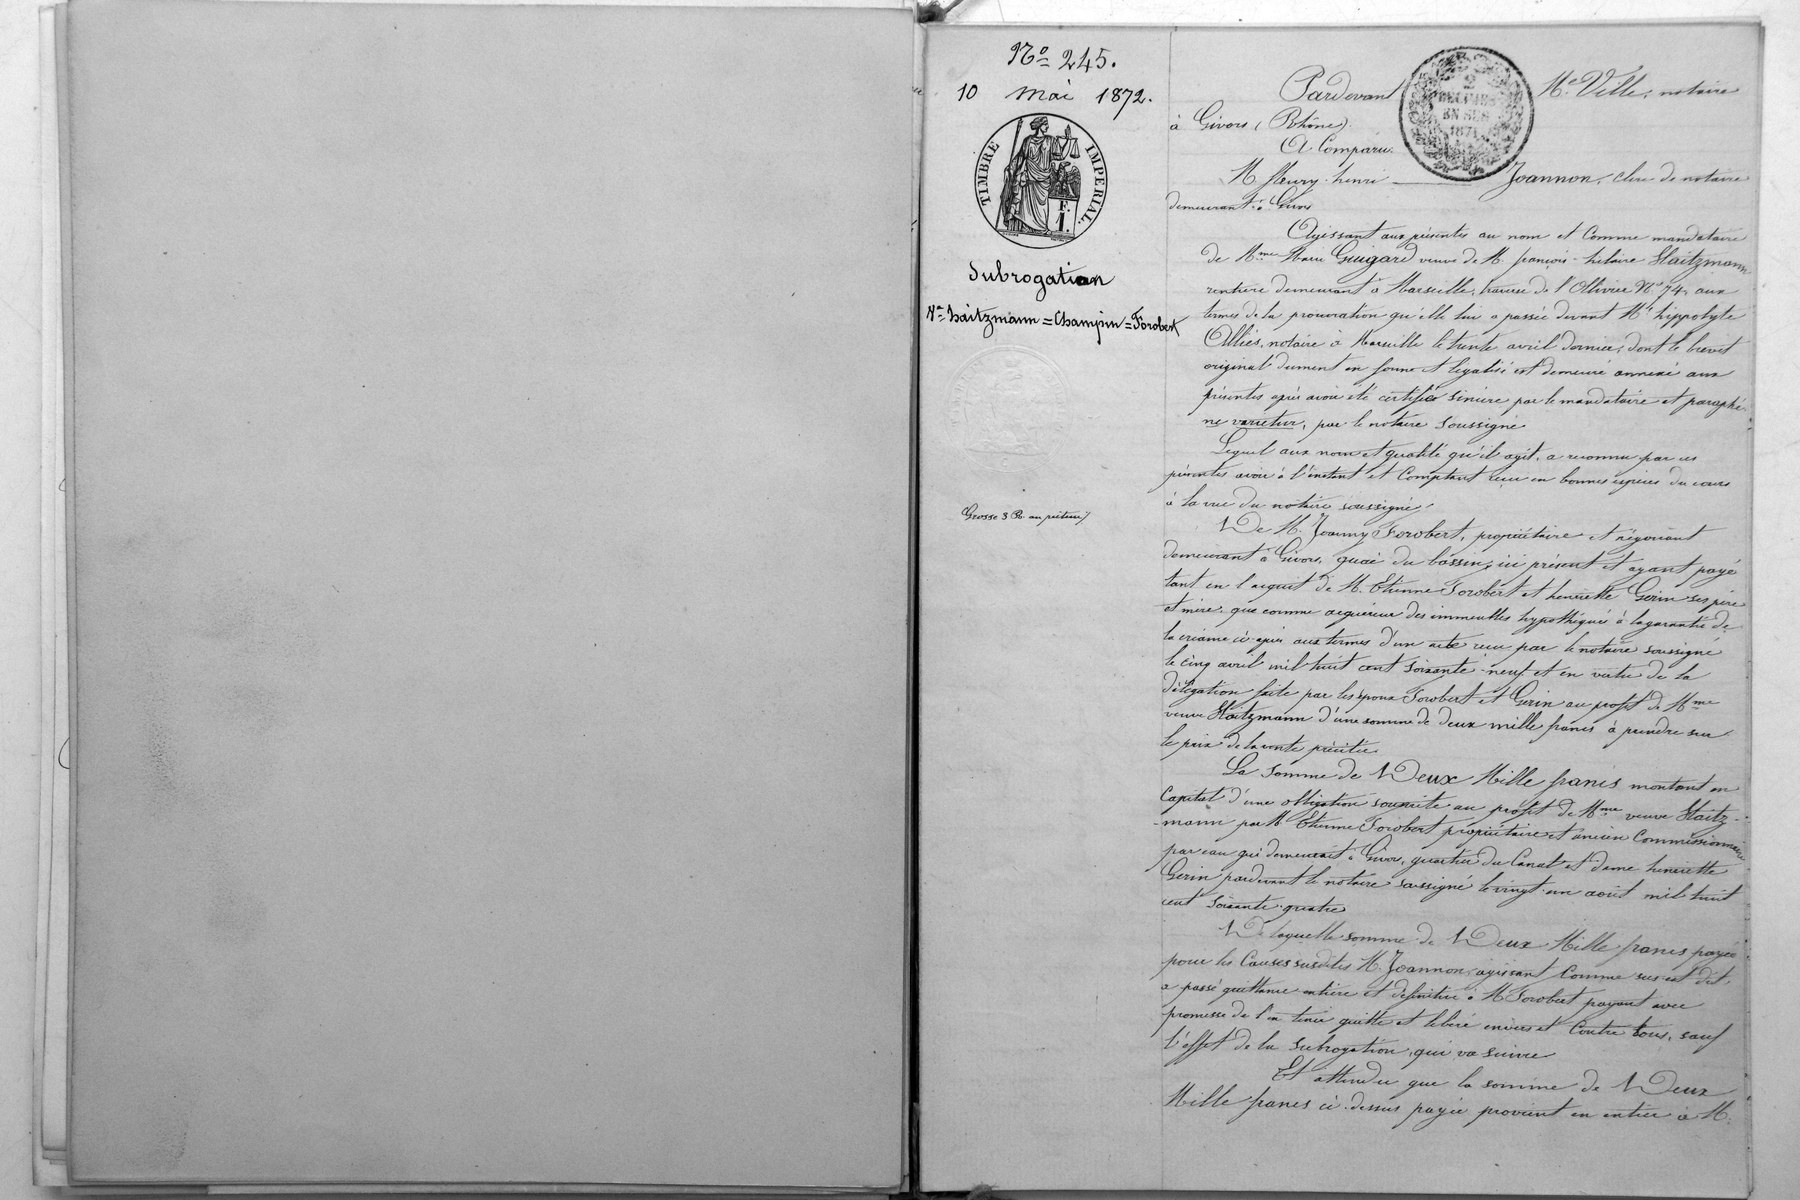 No 245.
10 Mai 1872.
TIMBRE IMPERIAL.
F. 1.
Subrogation
Vve haitzmann = Champin = Forobert
Grosse 3 R. au prêteur
2
DECIMES
EN SUS
1871
Pardevant Me Ville, notaire
à Givors (Rhône).
A Comparu.
M fleury-henri Joannon, clerc de notaire
demeurant à Givors
Agissant aux présentes au nom et Comme mandataire
de Mme Marie Guigard veuve de M. françois-hilaire Haitzmann
rentière demeurant à Marseille, traverse de l'Ollivier No 74, aux
termes de la procuration qu'elle lui a passée devant Me hippolyte
Alliés, notaire à Marseille le trente avril dernier, dont le brevet
original dument en forme et légalisé est demeuré annexé aux
présentes après avoir été certifié sincère par le mandataire et paraphé
ne varietur, par le notaire soussigné
Lequel aux nom et qualité qu'il agit, a reconnu par ces
présentes avoir à l'instant et Comptant reçu en bonnes espèces du cours
à la vue du notaire soussigné.
De M. Joanny Forobert, propriétaire et négociant
demeurant à Givors, quai du bassin, ici présent et ayant payé
tant en l'acquit de M. Etienne Forobert et henriette Gerin ses père
et mère, que comme acquéreur des immeubles hypothéqués à la garantie de
la créance ci-après aux termes d'un acte reçu par le notaire soussigné
le cinq avril mil huit cent soixante-neuf et en vertu de la
délégation faite par les époux Forobert et Gerin au profit de Mme
veuve Haitzmann d'une somme de deux mille francs à prendre sur
le prix de la vente précitée
La somme de Deux Mille francs montant en
Capital d'une obligation souscrite au profit de Mme veuve Haitz-
-mann par M. Etienne Forobert propriétaire et ancien Commissionnaire
par eau qui demeurait à Givors, quartier du Canal et dame henriette
Gerin pardevant le notaire soussigné le vingt-un août mil huit
cent soixante-quatre
De laquelle somme de Deux Mille francs payée
pour les Causes susdites M. Joannon, agissant Comme sus est dit,
a passé quittance entière et définitive à M Forobert payant avec
promesse de l'en tenir quitte et libéré envers et Contre tous, sauf
l'effet de la subrogation, qui va suivre
Et attendu que la somme de Deux
Mille francs ci-dessus payée provient en entier à M.